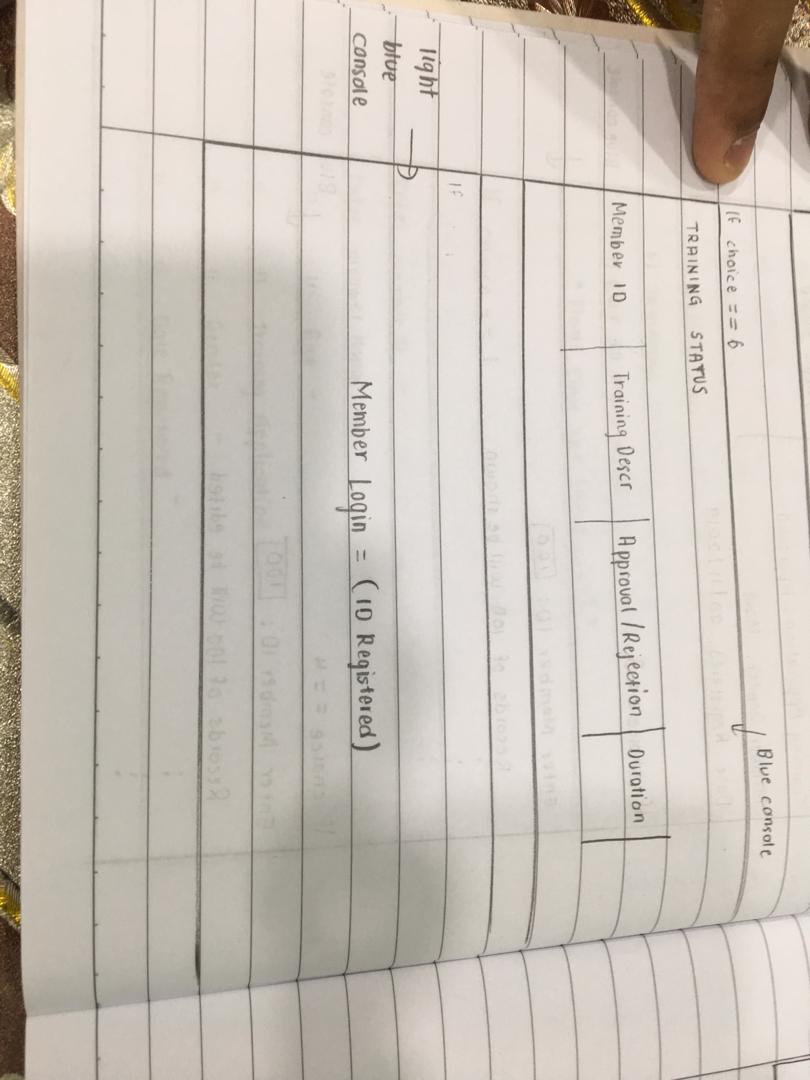 Blue console
IF choice == 6
TRAINING STATUS
Member ID | Training Descr | Approval /Rejection | Duration
IF
light
blue
console
Member Login = (ID Registered)